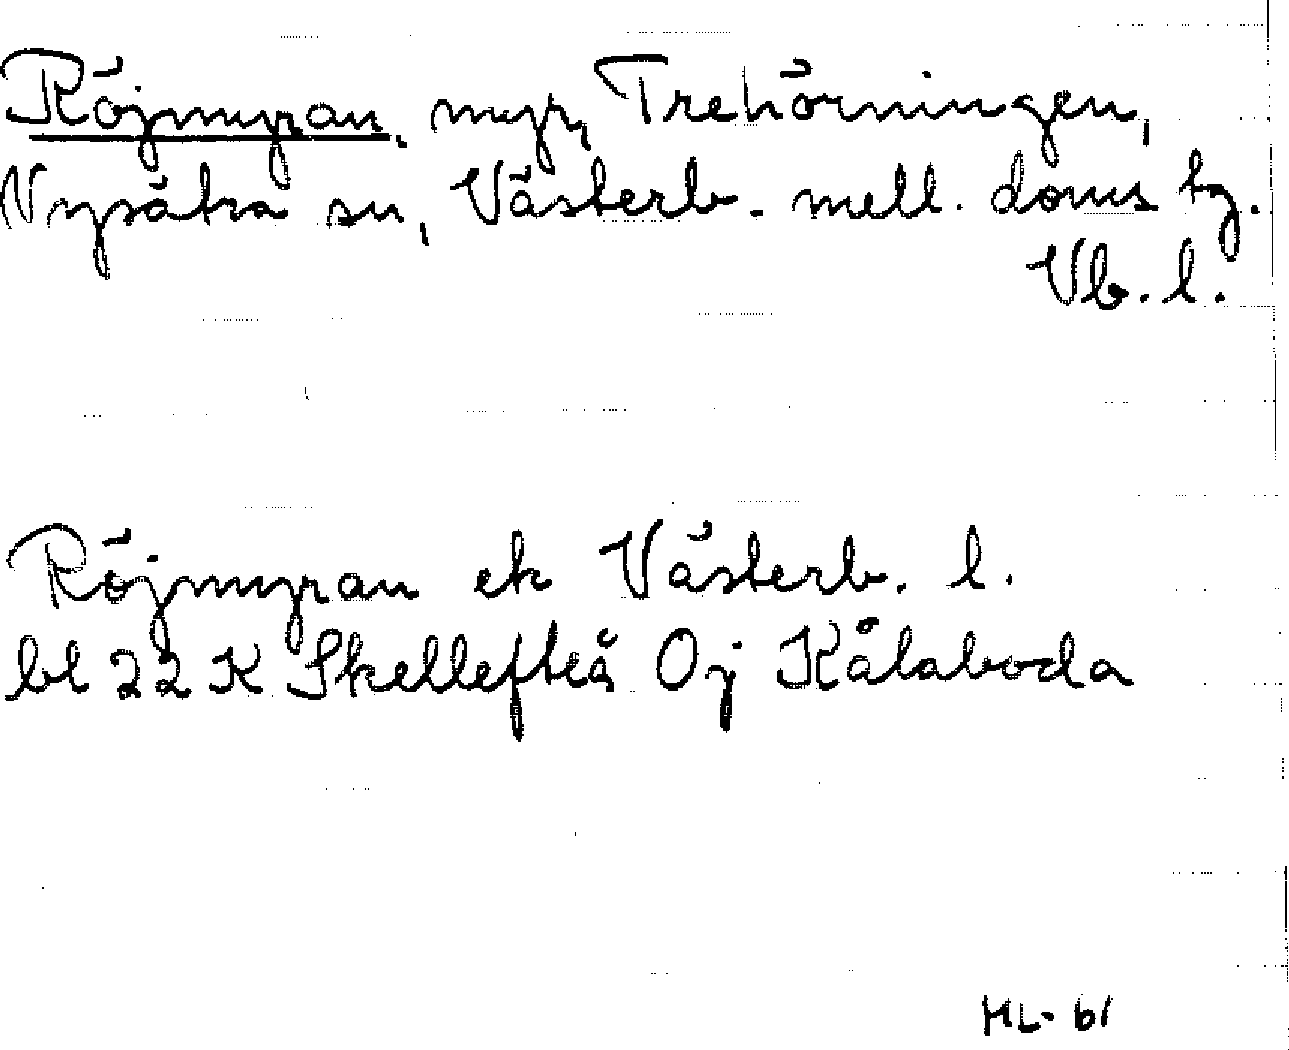 Röjmyran, myr, Trehörningen,
Nysätra sn, Västerb. mell. doms hg.
Vb. l.
Röjmyran ek Västerb. l.
bl 22 K Skellefteå Oj Kålaboda
HL- 61